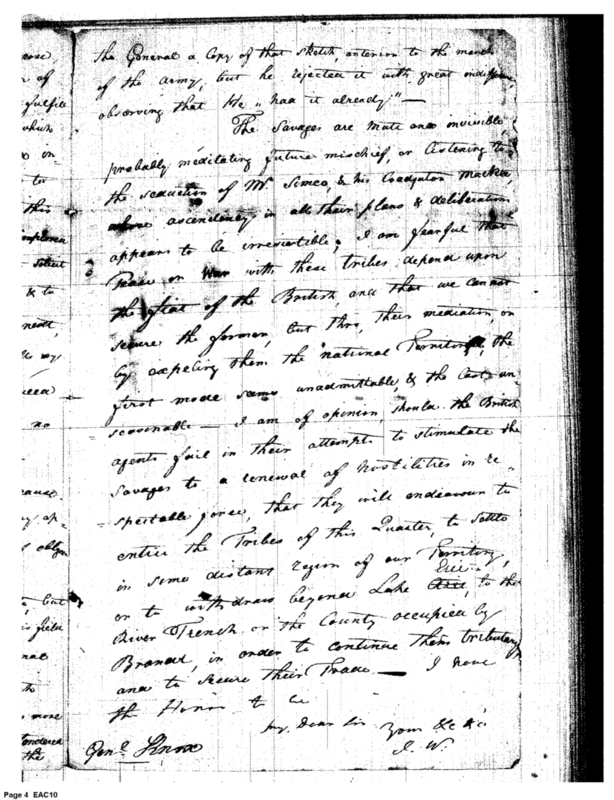 the General a Copy of that sketch, anterior to the march
of the army, but he rejected it with great
observing that He "had it already" —
The Savages are mute and invisible,
probably meditating future mischief, or listening to
the seduction of Mr Simco, & his Coadjutor Mackee,
whose ascendency in all their plans & deliberation
appears to be irresistible; I am fearful that
Peace or War with these tribes, depend upon
the fiat of the British, and that we cannot
secure the former, but thro, their mediation, or
by expeling them the national Territory, the
first mode seems unadmittable, & the last un-
seasonable — I am of opinion, should the British
agents fail in their attempts to stimulate the
Savages to a renewal of hostilities in re-
spectable force, that they will endeavour to
entice the Tribes of this Quarter, to settle
in some distant region of our Territory,
or to withdraw beyond Lake Erie, to the
River Trench or the County occupied by
Brandt, in order to continue them tributary
and to secure their Trade — I have
the Honor to be
my Dear Sir Your &c &c
J. W.
Genl. Knox
more,
of
fulfile
which
to
this
& to
my
no
but
more
the
Page 4 EAC10